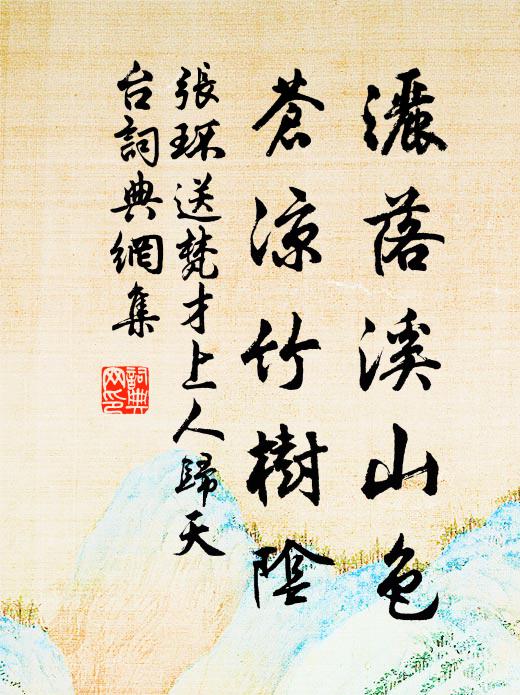 灑落溪山色
蒼涼竹樹陰
張瓌送梵才上人歸天
台詞典網集
詞典
网印